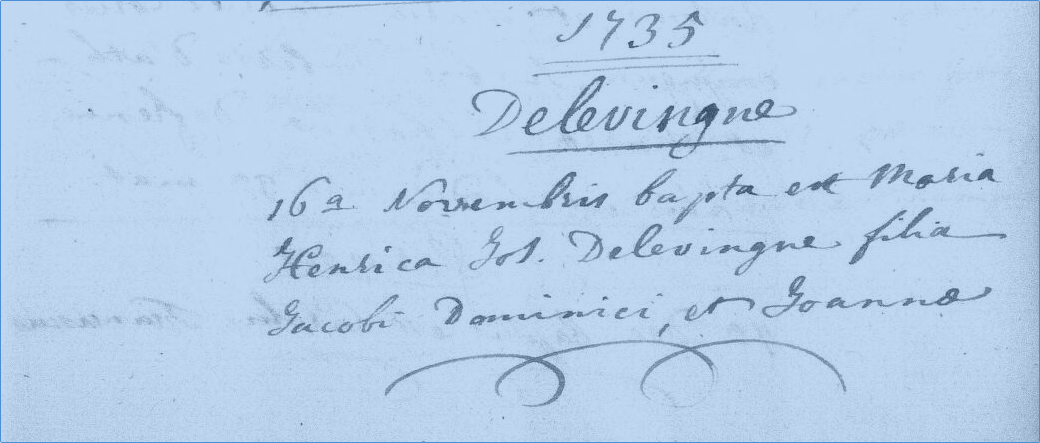 1735
Delevingne
16a Novembris bapta est Maria
Henrica Jos. Delevingne filia
Jacobi Dominici, et Joannæ